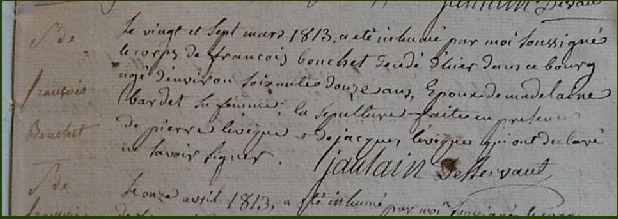 Sre de
françois
Bouchet
Le vingt et Sept mars 1813, a été inhumé par moi Soussigné
le corps de françois bouchet décédé d'hier dans ce bourg
agé d'environ soixante douze ans, Epoux de madelaine
bardet sa femme; la sepulture faite en presence
de pierre levéque et de jacques levéque qui ont declaré
ne savoir signer. Gaulain Desservant
Sre de
Le onze avril 1813, a été inhumé par moi Soussigné le corps